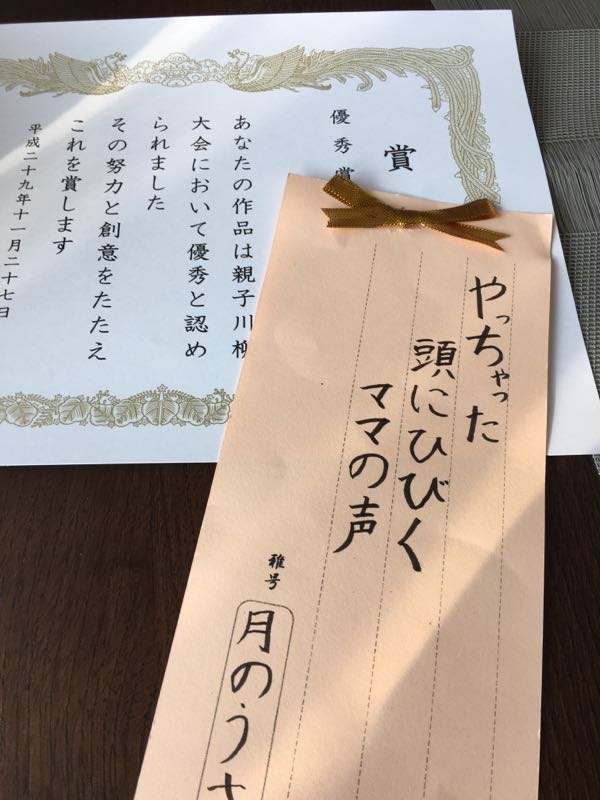 賞
優秀賞
あなたの作品は親子川柳
大会において優秀と認め
られました
その努力と創意をたたえ
これを賞します
平成二十九年十一月二十七日
やっちゃった
頭にひびく
ママの声
雅号
月のうさ